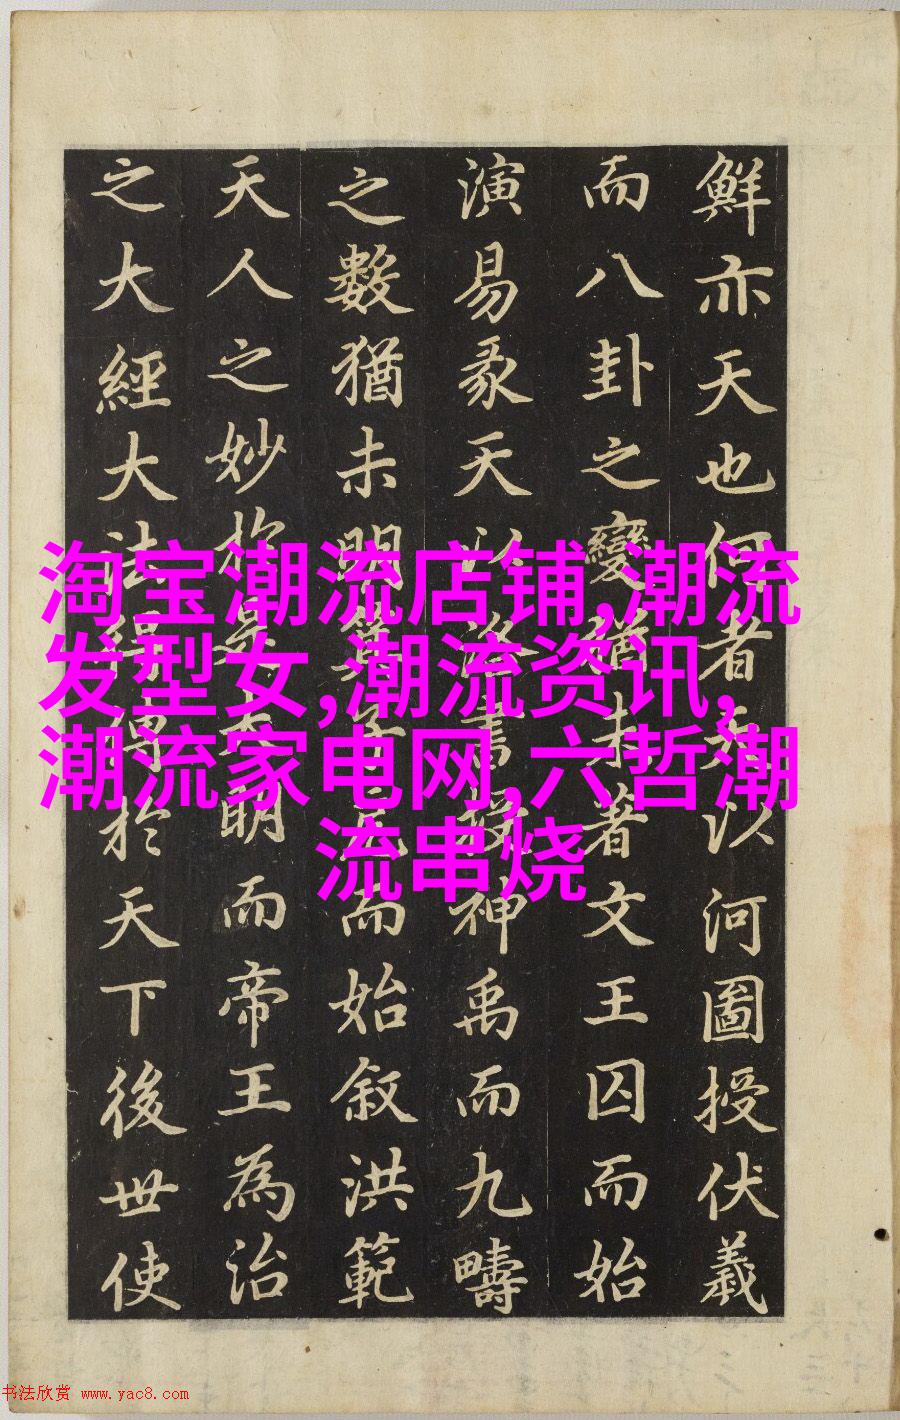 鮮亦天也何者天以河圖授伏羲
而八卦之變猶未著文王囚而始
演易彖天以洛書錫神禹而九疇
之數猶未聞箕子而始叙洪範
天人之妙於是明而帝王為治
之大經大法得傳於天下後世使
淘宝潮流店铺,潮流
发型女,潮流资讯,
潮流家电网,六哲潮
流串烧
书法欣赏 www.yac8.com